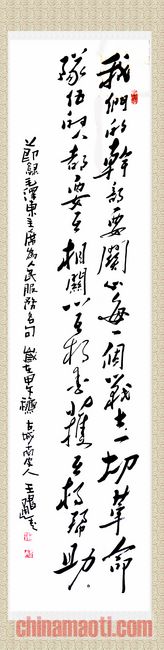 我們的幹部要關心每一個戰士一切革命
隊伍的人都要互相關心互相愛護互相幫助
節錄毛澤東主席為人民服務名句 歲在甲午 古城西安人 王
chinamaoti.com